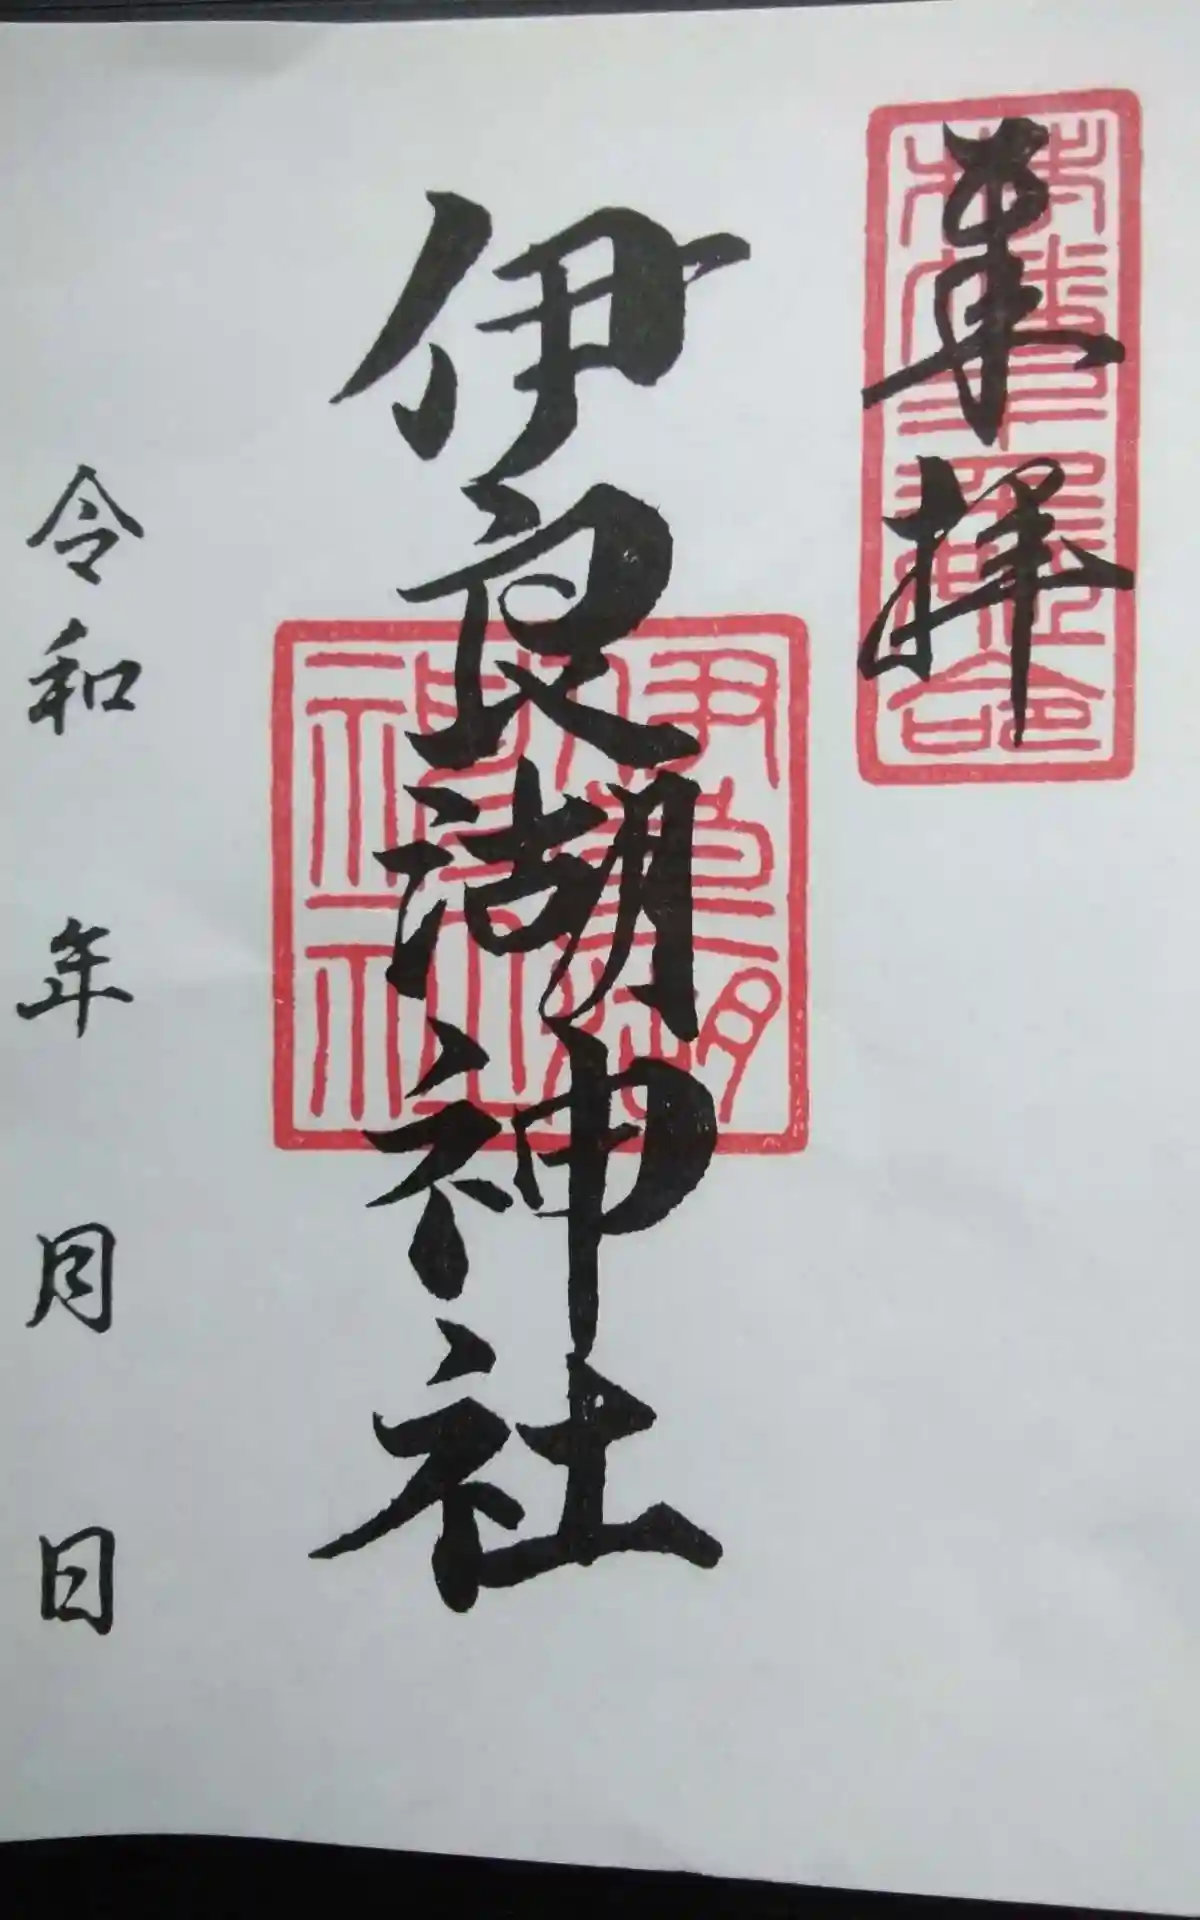 奉拝
伊良湖神社
令和 年 月 日